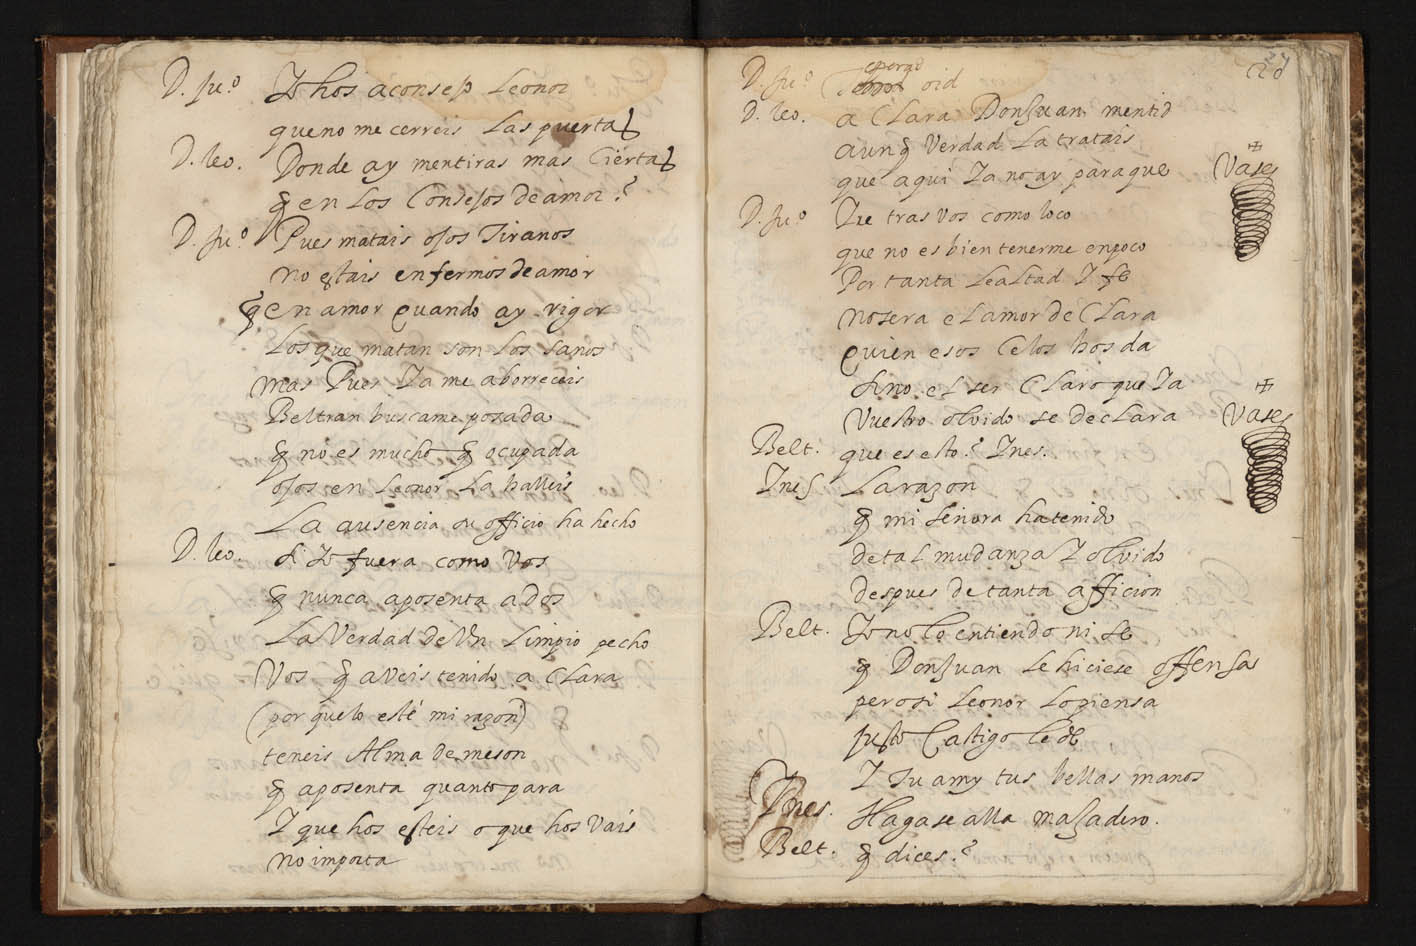 D. Ju.º Yo hos aconsejo Leonor
que no me cerreis las puertas
D. leo. Donde ay mentiras mas Ciertas
q en los Consejos de amor?
D. Ju.º Pues matais ojos Tiranos
no estais enfermos de amor
q en amor quando ay rigor
Los que matan son los sanos
mas Pues Ya me aborreceis
Beltran buscame posada
q no es mucho q ocupada
ojos en Leonor la halleis
La ausencia su officio ha hecho
D. leo. si Yo fuera como Vos
q nunca aposenta a dos
La Verdad de Un Limpio pecho
Vos q aveis tenido a Clara
(por quelo esté mi razon)
teneis Alma de meson
q aposenta quanto para
Y que hos esteis o que hos Vais
no importa
D. Ju.º esperad oid
D. leo. a Clara Don Juan mentid
aunq Verdad La tratais
que aqui Ya no ay para que Vase
D. Ju.º Yre tras Vos como loco
que no es bien tenerme en poco
Por tanta Lealtad Y fe
no sera el amor de Clara
quien esos Celos hos da
sino el ser Claro que Ya
Vuestro olvido se declara Vase
Belt. que es esto? Ines.
Ines La razon
q mi señora ha tenido
de tal mudanza Y olvido
despues de tanta afficion
Belt. Yo no lo entiendo ni se
q Don Juan le hiciese offensa
pero si Leonor lo piensa
justo Castigo le de
Y Tu a my tus bellas manos
Ines. Hagase alla majadero.
Belt. q dices?